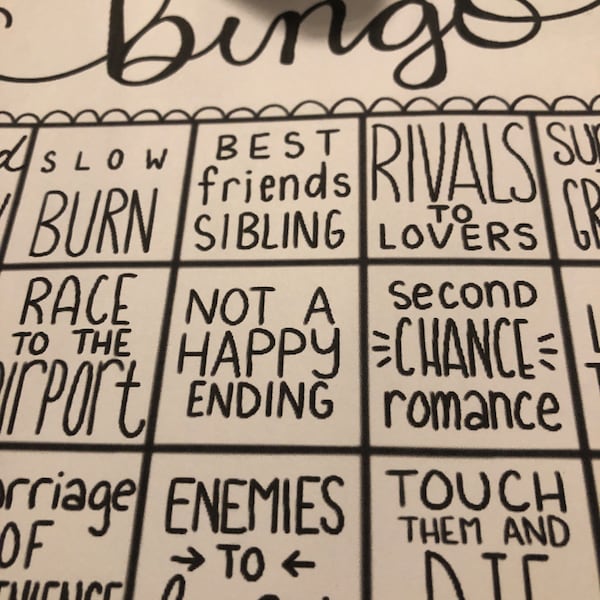 bingo
SLOW
BURN
BEST
friends
SIBLING
RIVALS
TO
LOVERS
RACE
TO THE
airport
NOT A
HAPPY
ENDING
second
CHANCE
romance
OF
ENEMIES
→ TO ←
TOUCH
THEM AND
DIE